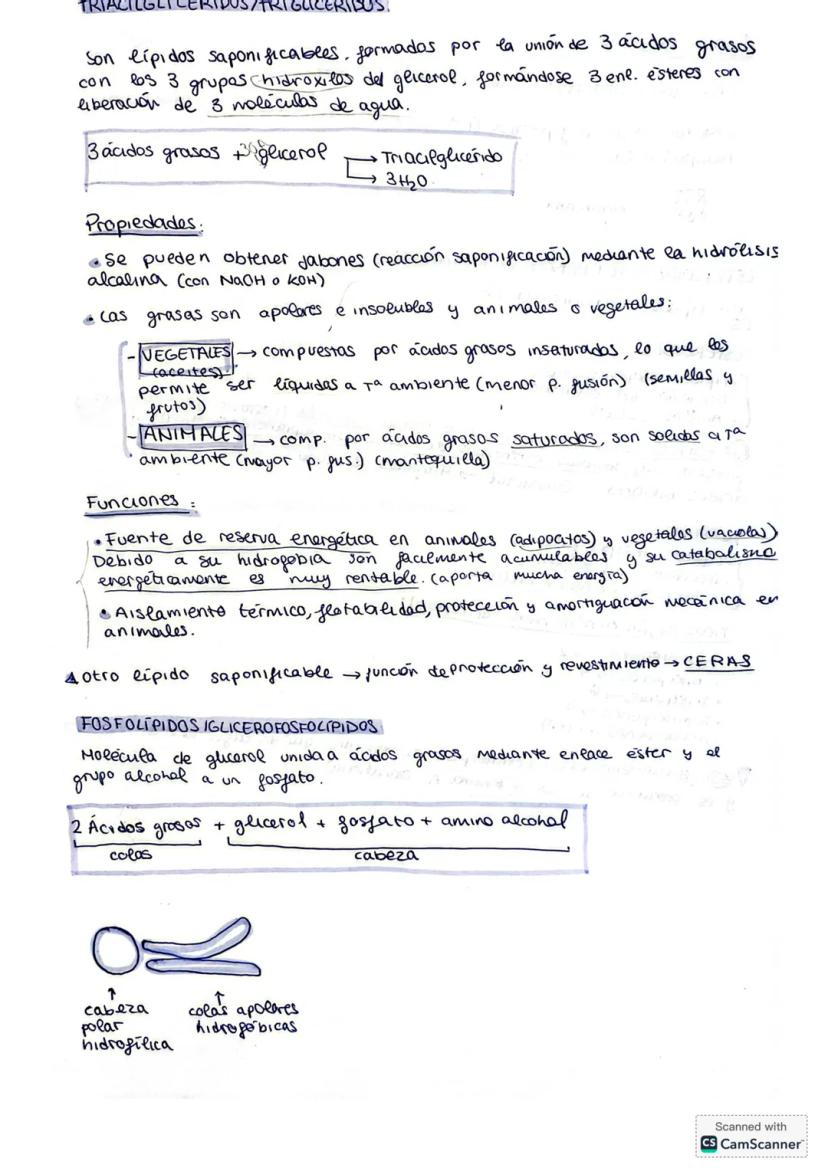 TRIACILGLICÉRIDOS/TRIGLICÉRIDOS.
Son lípidos saponificables, formados por la unión de 3 ácidos grasos
con los 3 grupos hidroxilos del glicerol, formándose 3 enl. ésteres con
liberación de 3 moléculas de agua.
3 ácidos grasos + glicerol → Triacilglicérido
→ 3H₂O
Propiedades:
• Se pueden obtener jabones (reacción saponificación) mediante la hidrólisis
alcalina (con NaOH o KOH)
• Las grasas son apolares e insolubles y animales o vegetales:
- VEGETALES → compuestas por ácidos grasos insaturados, lo que les
(aceites)
permite ser líquidas a Tª ambiente (menor p. fusión) (semillas y
frutos)
- ANIMALES → comp. por ácidos grasos saturados, son solidas a Tª
ambiente (mayor p. fus.) (mantequilla)
Funciones:
• Fuente de reserva energética en animales (adipocitos) y vegetales (vacuolas)
Debido a su hidrofobia son facilmente acumulables y su catabolismo
energéticamente es muy rentable. (aporta mucha energía)
• Aislamiento térmico, flotabilidad, protección y amortiguación mecánica en
animales.
Otro lípido saponificable → función de protección y revestimiento → CERAS
FOSFOLÍPIDOS/GLICEROFOSFOLÍPIDOS
Molécula de glicerol unida a ácidos grasos mediante enlace éster y el
grupo alcohol a un fosfato.
2 Ácidos grasos + glicerol + fosfato + amino alcohol
colas cabeza
↑ ↑
cabeza colas apolares
polar hidrofóbicas
hidrofílica
Scanned with
CS CamScanner